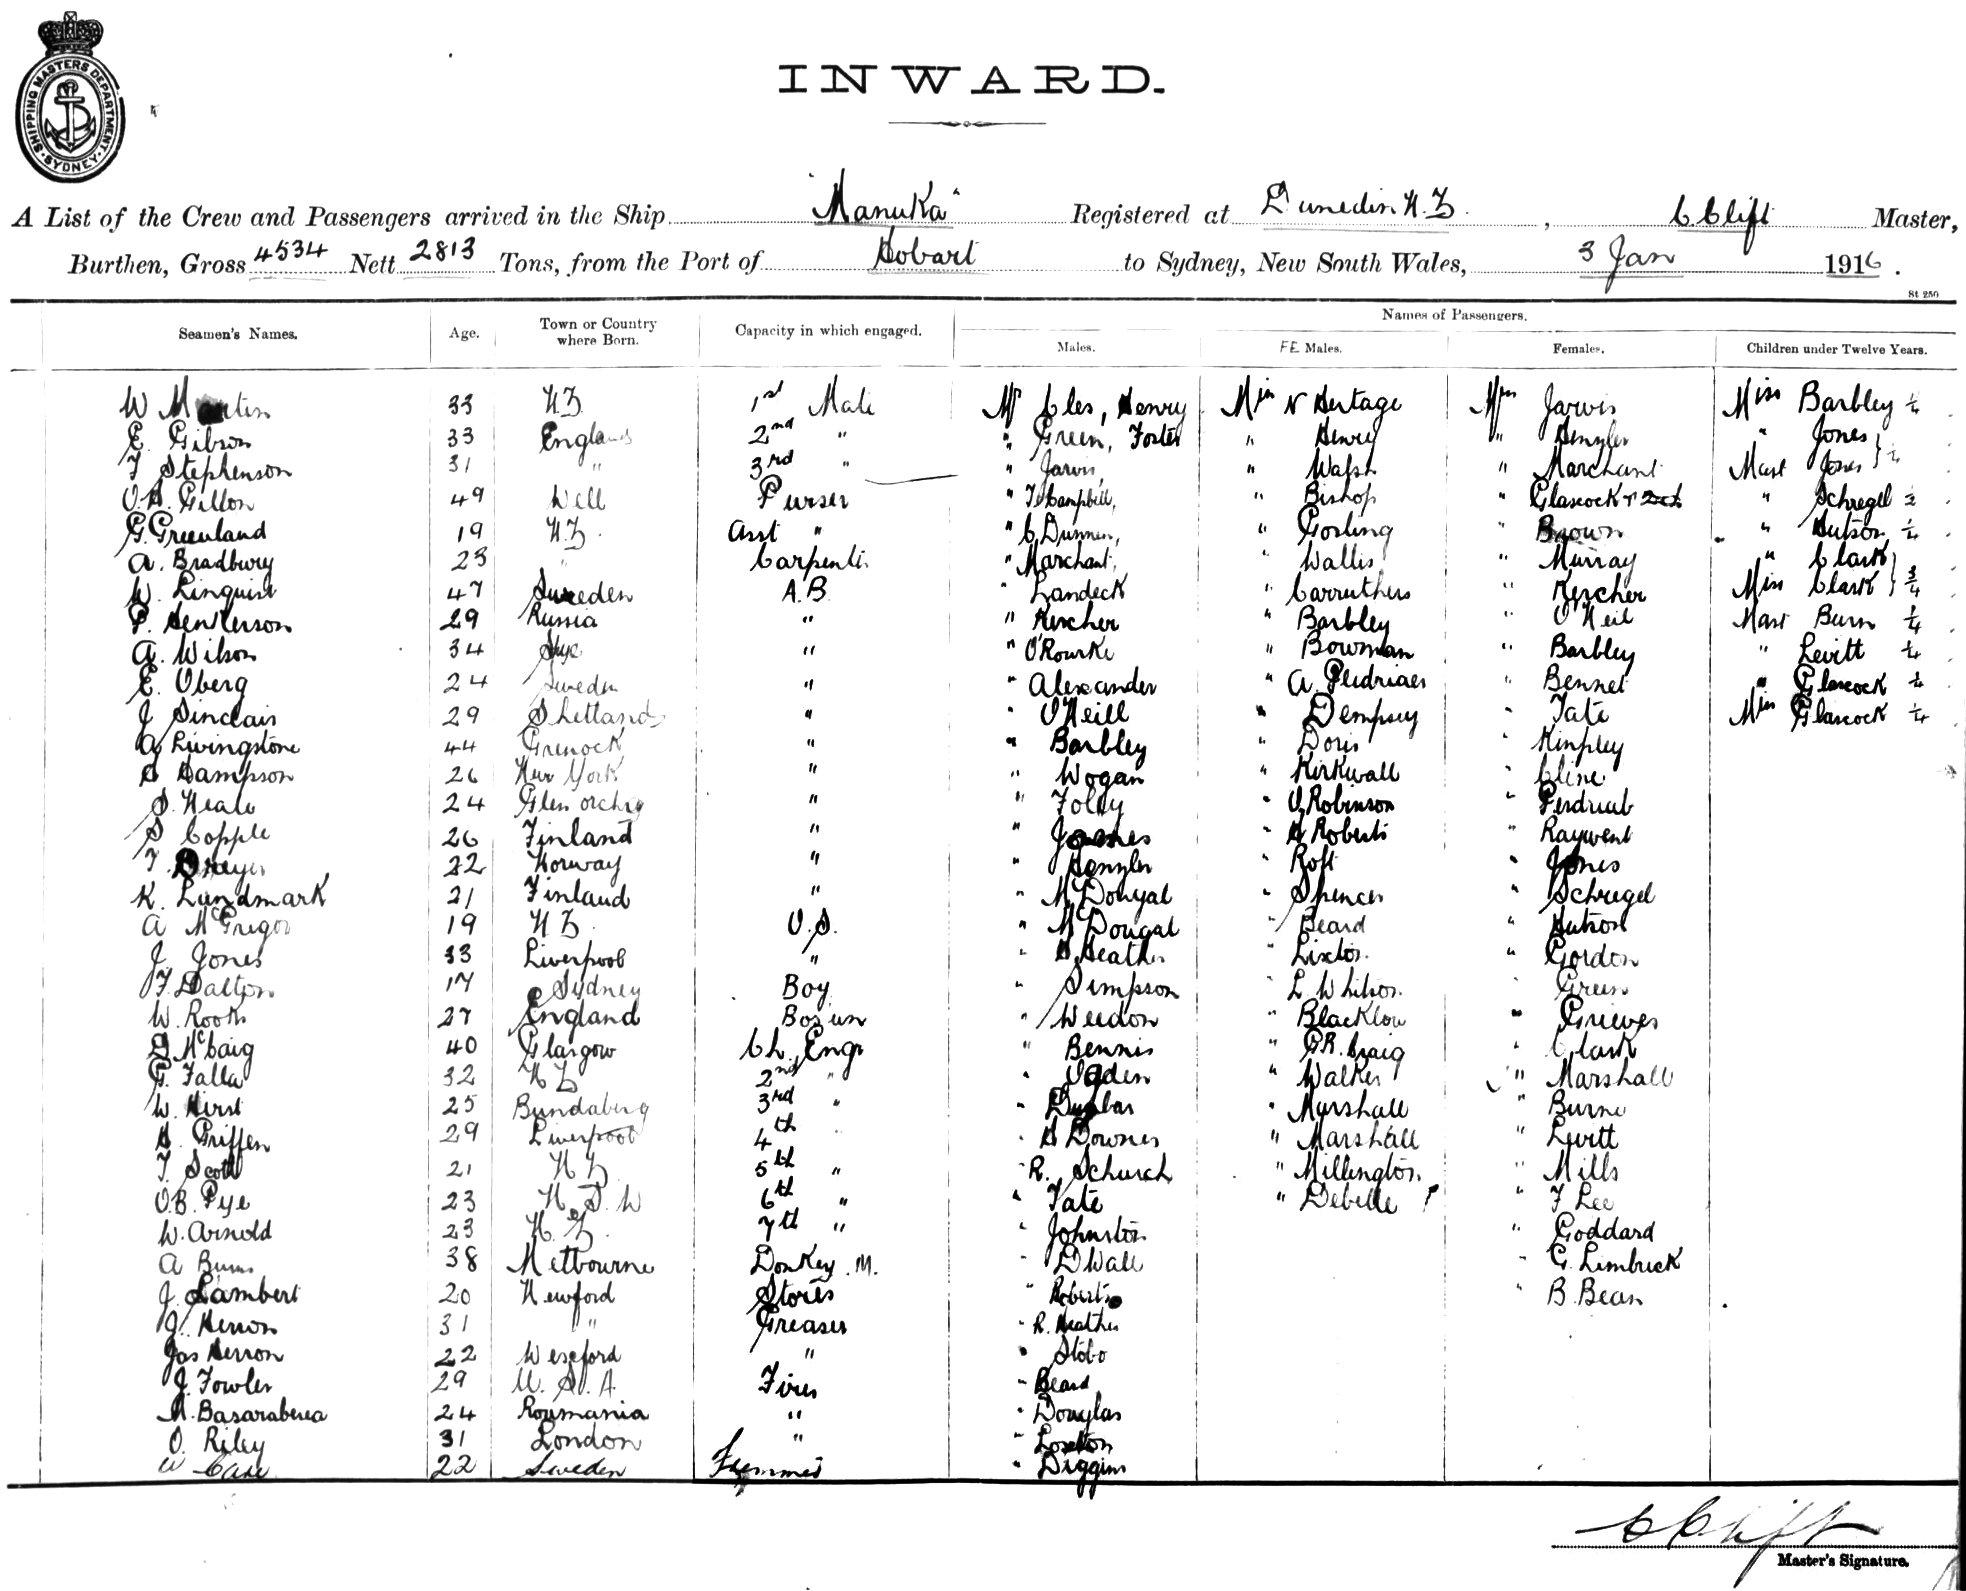 SHIPPING MASTERS DEPARTMENT
SYDNEY
INWARD.
A List of the Crew and Passengers arrived in the Ship "Manuka" Registered at Dunedin N.Z. , C Clift Master,
Burthen, Gross 4534 Nett 2813 Tons, from the Port of Hobart to Sydney, New South Wales, 3 Jan 1916.
St 250
Names of Passengers.
Seamen's Names. Age. Town or Country where Born. Capacity in which engaged. Males. FE Males. Females. Children under Twelve Years.
W Martin 33 N.Z. 1st Mate Mr Cles, Henry Miss N Hertage Mrs Jarvis Miss Barbley
E. Gibson 33 England 2nd " " Green, Foster " Henry " Henzler " Jones
F Stephenson 31 " 3rd " " Jarvis, " Walsh " Marchant Mast Jones
O.H. Gillon 49 Well Purser " T. Campbell, " Bishop " Glascock " Schregel
G. Greenland 19 N.Z. Asst " " C Dunnen, " Gosling " Brown " Hutson
A. Bradbury 23 " Carpenter " Marchant, " Wallis " Murray " Clark
W. Linquist 47 Sweden A.B. " Landeck " Carruthers " Kercher Miss Clark
P. Henkerson 29 Russia " " Kercher " Barbley " O'Neil Mast Burn
A. Wilson 34 Skye " " O'Rourke " Bowman " Barbley " Levitt
E. Oberg 24 Sweden " " Alexander " A. Pledriaes " Bennet " Glascock
J Sinclair 29 Shetlands " " O'Neill " Dempsey " Tate Miss Glascock
A Livingstone 44 Grenock " " Barbley " Doris " Kinpley
H Hampson 26 New York " " Wogan " Kirkwall " Cline
S. Neale 24 Glenorchy " " Foley " O. Robinson " Perdriab
S Copple 26 Finland " " Joanes " H Roberts " Raywent
T. Dreyer 22 Norway " " Henzler " Roft " Jones
K. Lundmark 21 Finland " " McDougal " Spencer " Schregel
A McGregor 19 N.Z. O.S. " McDougal " Beard " Hutson
J. Jones 33 Liverpool " " H. Heather " Lixton " Gordon
F. Dalton 17 Sydney Boy " Simpson " L. Whitson " Green
W. Rooks 27 England Bos'un " Weedon " Blacklow " Grieves
D McCaig 40 Glasgow Ch. Engr " Bennis " G.R. Craig " Clark
G. Falla 32 N.Z. 2nd " " Ogden " Walker " Marshall
W. Hirst 25 Bundaberg 3rd " " Dunbar " Marshall " Burne
H. Griffen 29 Liverpool 4th " " H Downes " Marshall " Levitt
T. Scott 21 N.Z. 5th " " R. Schurch " Millington " Mills
O.B. Pye 23 N.S.W 6th " " Tate " Debelle " F Lee
W. Arnold 23 N.Z. 7th " " Johnston " Goddard
A Burns 38 Melbourne Donkey M. " D Wall " G. Limbrick
J. Lambert 20 Newford Stores " Roberts " B. Bean
J. Herron 31 " Greaser " R. Heather
Jas Herron 22 Wexford " " Stobo
J. Fowler 29 U.S.A. Fires " Beard
M. Basaraberea 24 Roumania " " Douglas
O. Riley 31 London " " Loxton
W Case 22 Sweden " Diggins
C Clift
Master's Signature.